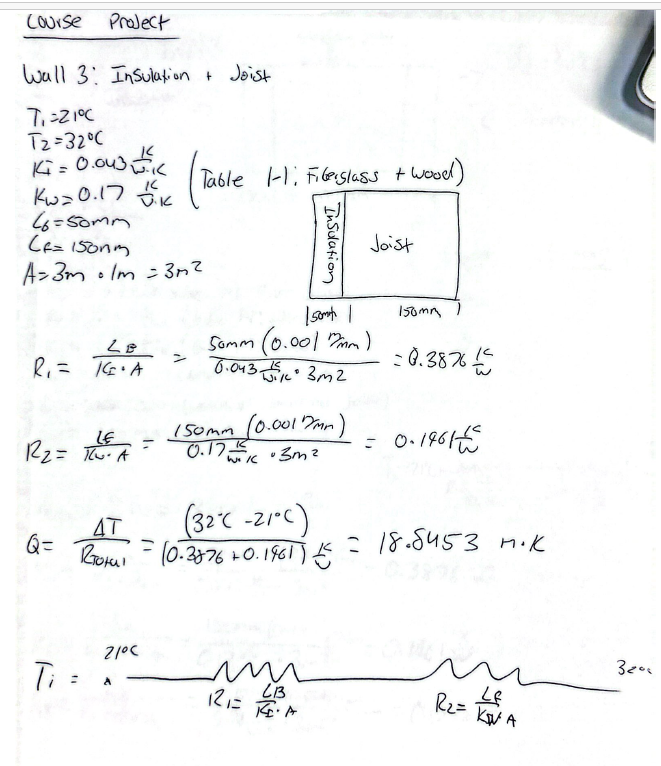 Course Project
Wall 3: Insulation + Joist
T₁=21°C
T2=32°C
KI = 0.043 K/W·K
Kw=0.17 K/W·K (Table 1-1: Fiberglass + Wood)
L6=50mm
LF= 150mm
A=3m · 1m = 3m²
Insulation
Joist
50mm
150mm
R₁ = LB/KI·A = 50mm (0.001 m/mm)/0.043 K/W·K · 3m2 = 0.3876 K/W
R2 = LF/Kw·A = 150mm (0.001 m/mm)/0.17 K/W·K · 3m² = 0.1961 K/W
Q= ΔT/RTotal = (32°C -21°C)/(0.3876 +0.1961) K/W = 18.8453 m·K
21°C
Ti =
R₁= LB/KI·A
R2= LF/KW·A